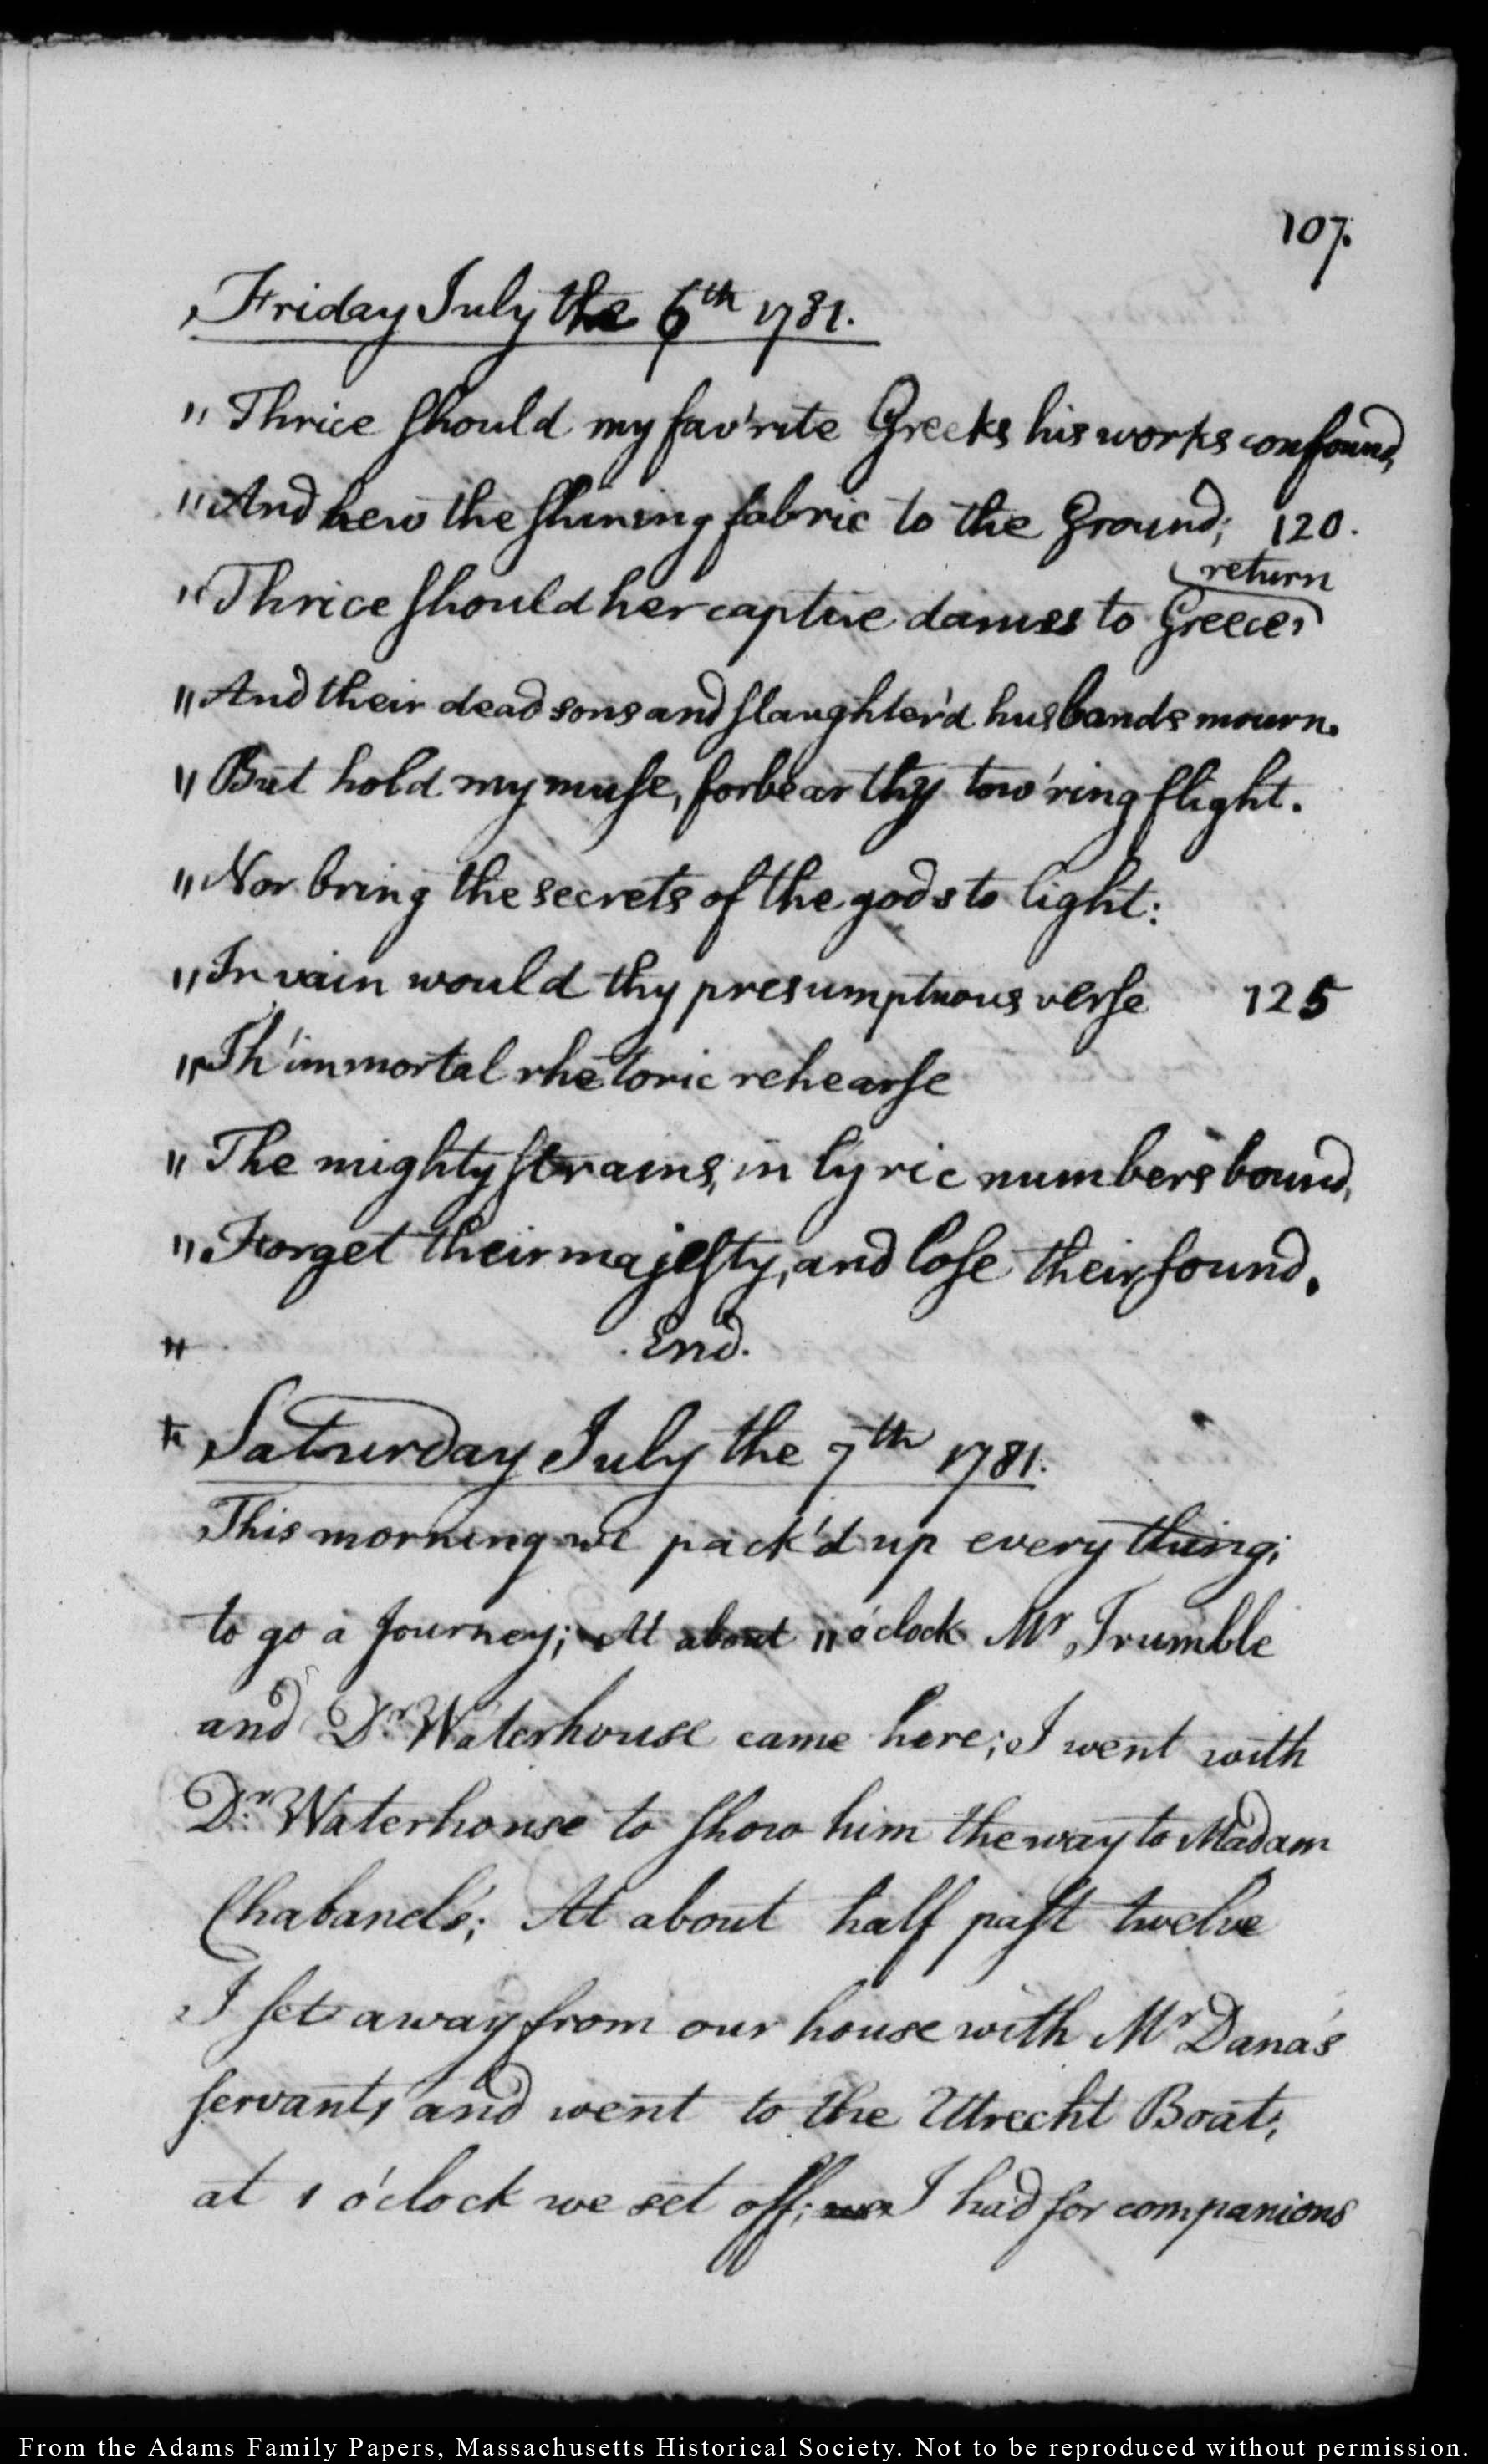 107.
Friday July the 6th 1781.
" Thrice should my fav'rite Greeks his works confound,
" And hew the shining fabric to the Ground; 120.
return
" Thrice should her captive dames to Greece,
" And their dead sons and slaughter'd husbands mourn.
" But hold my muse, forbear thy tow'ring flight.
" Nor bring the secrets of the gods to light:
" In vain would thy presumptuous verse 125
" Th'immortal rhetoric rehearse
" The mighty strains, in lyric numbers bound,
" Forget their majesty, and lose their sound.
" End.
Saturday July the 7th 1781.
This morning we pack'd up every thing;
to go a journey; At about 11 o'clock Mr Trumble
and Dr. Waterhouse came here; I went with
Dr. Waterhouse to show him the way to Madam
Chabanel's; At about half past twelve
I set away from our house with Mr Dana's
servant, and went to the Utrecht Boat;
at 1 o'clock we set off; I had for companions
From the Adams Family Papers, Massachusetts Historical Society. Not to be reproduced without permission.